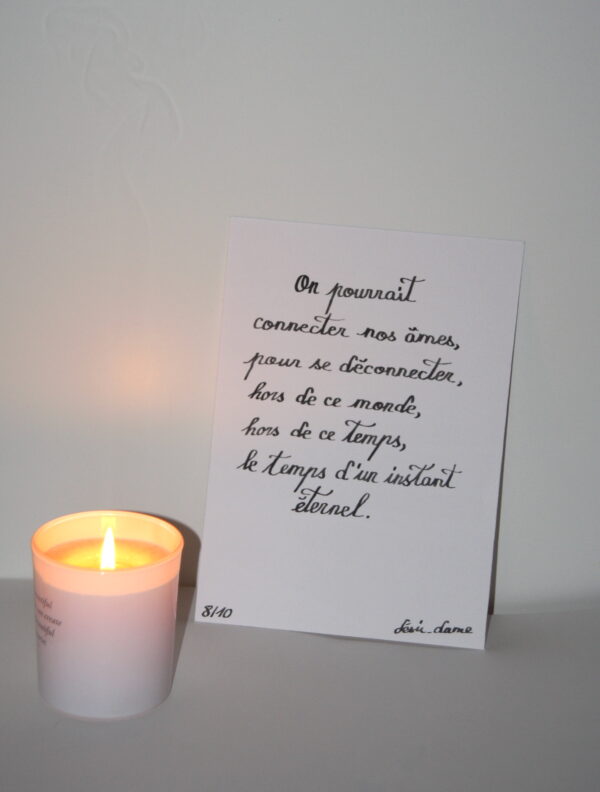 On pourrait
connecter nos âmes,
pour se déconnecter,
hors de ce monde,
hors de ce temps,
le temps d'un instant
éternel.
8/10
create